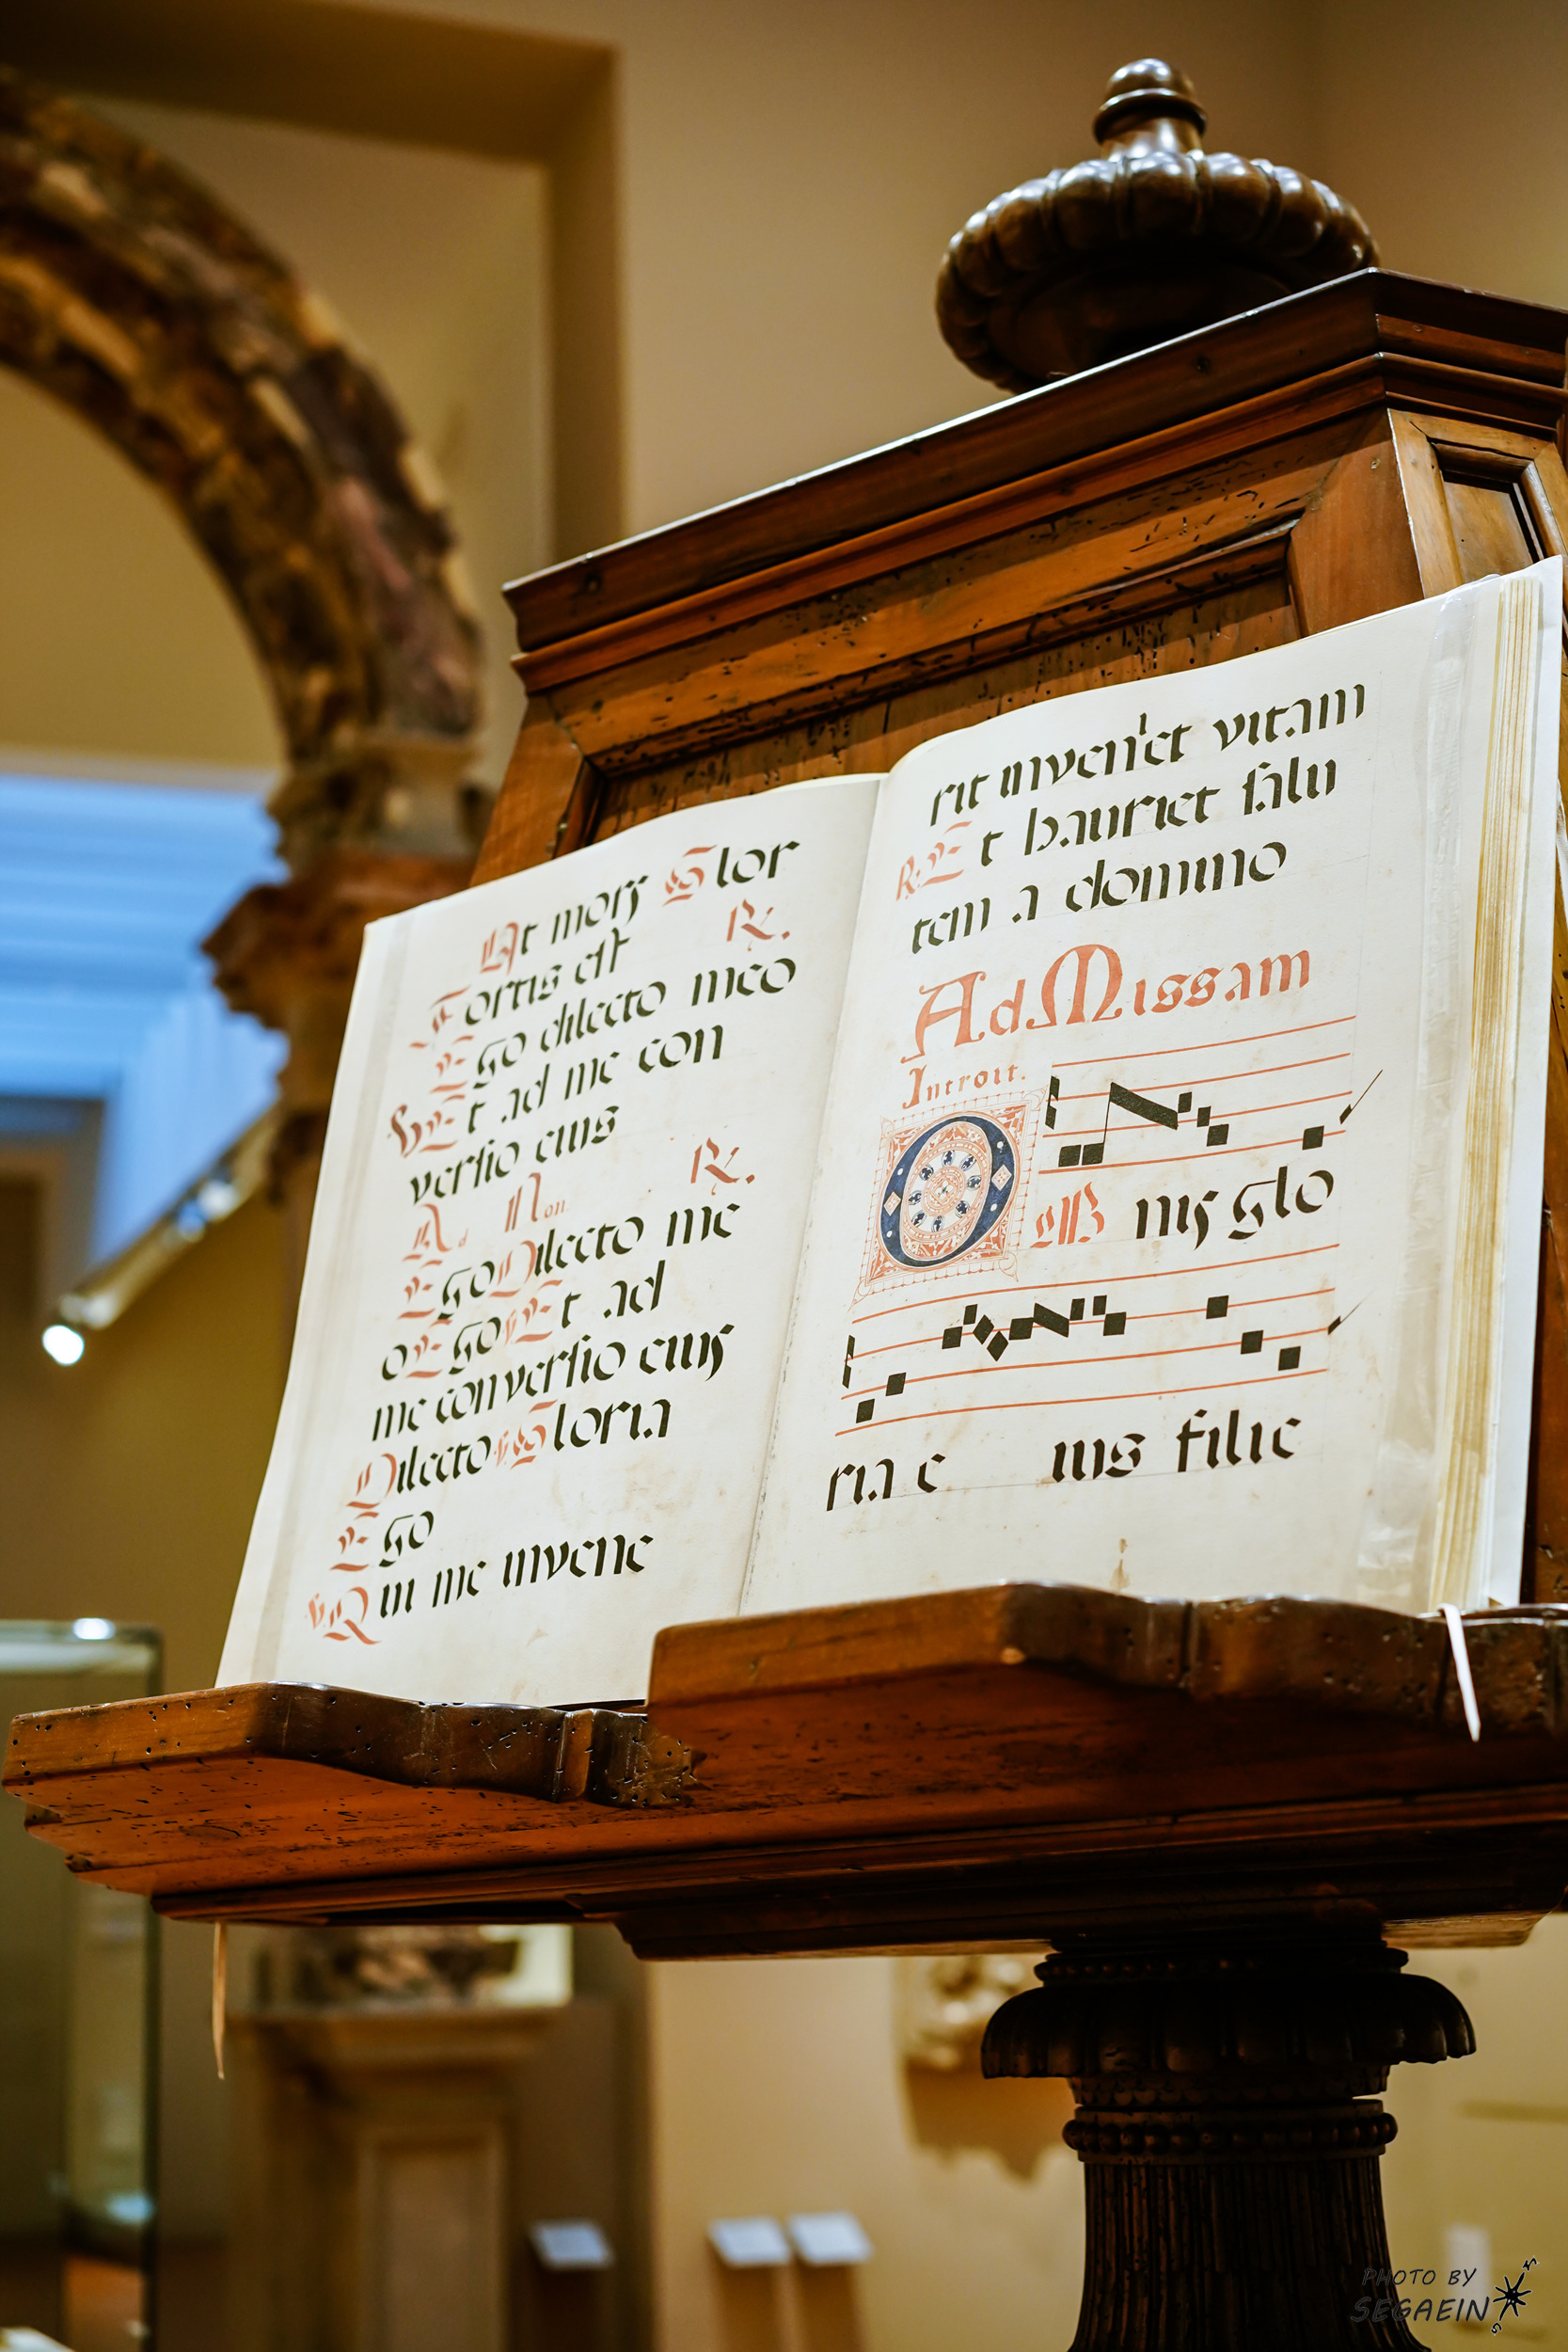 Ut mors Glor
Fortis est R.
Ego dilecto meo
V. Et ad me con
versio eius
Ad Non. R.
Ego Dilecto me
o Ego V. Et ad
me conversio eius
Dilecto V. Gloria
Ego
V. Qui me invene
rit inveniet vitam
R. Et hauriet salu
tem a domino
Ad Missam
Introit.
OMnis glo
ria e ius filie
PHOTO BY
SEGAEIN
N
S